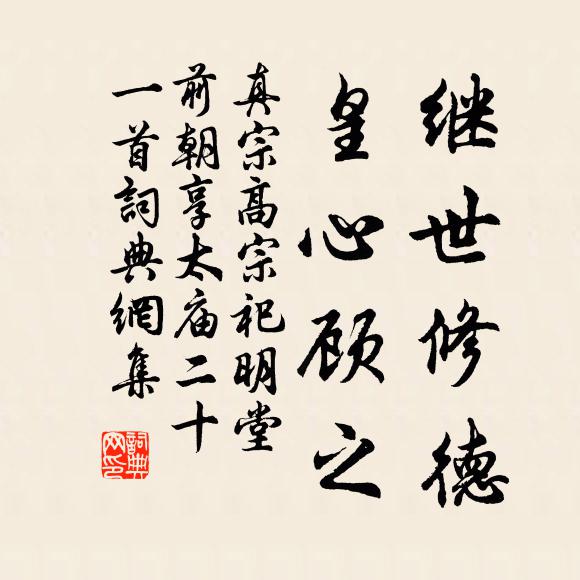 继世修德
皇心顾之
真宗高宗祀明堂
前朝享太庙二十
一首詞典網集
詞典网印